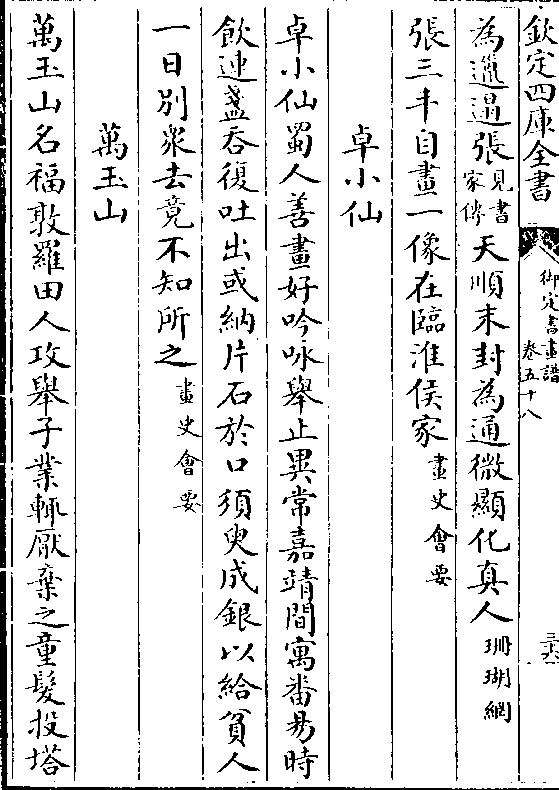 欽定四庫全書
御定書畫譜
卷五十八
為邋遢張見書家傳天順末封為通微顯化真人珊瑚網
張三丰自畫一像在臨淮侯家畫史會要
卓小仙
卓小仙蜀人善畫好吟咏舉止異常嘉靖間寓番昜時
飲連盞吞復吐出或納片石於口須臾成銀以給貧人
一日別衆去竟不知所之畫史會要
萬玉山
萬玉山名福敦羅田人攻舉子業輒厭棄之童髮投塔